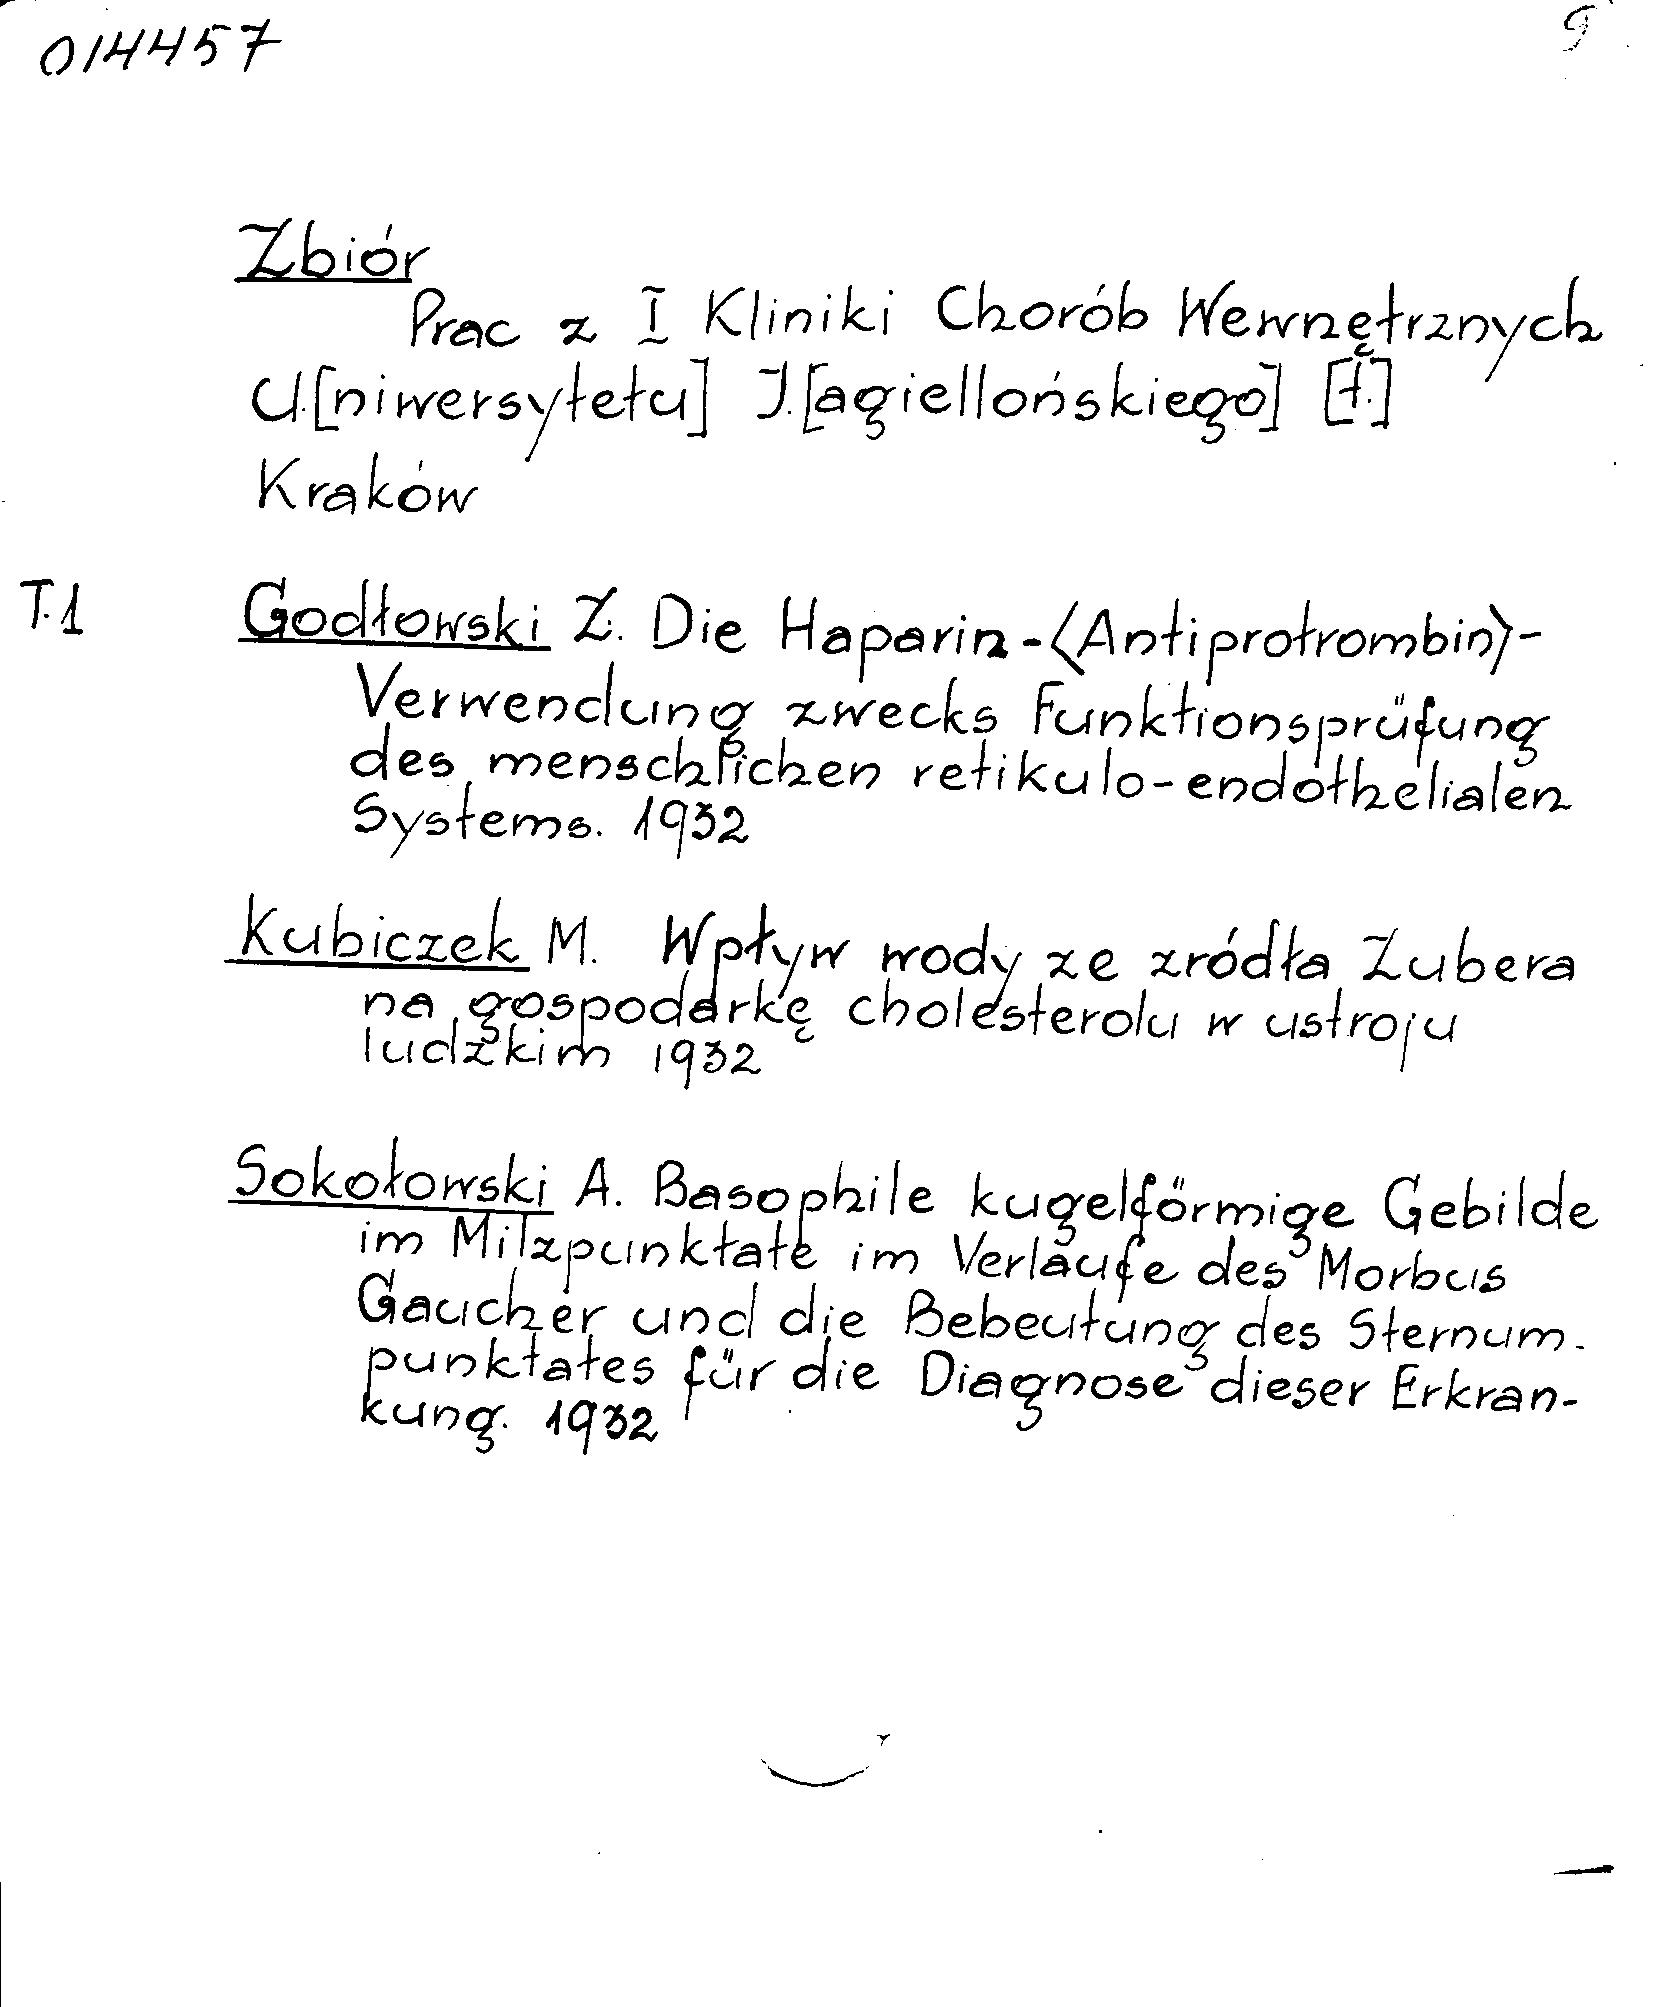 014457
9
Zbiór
Prac z I Kliniki Chorób Wewnętrznych
U.[niwersytetu] J.[agiellońskiego] [t.]
Kraków
T.1 Godłowski Z. Die Haparin-<Antiprotrombin>-
Verwendung zwecks Funktionsprüfung
des menschlichen retikulo-endothelialen
Systems. 1932
Kubiczek M. Wpływ wody ze zródła Zubera
na gospodarkę cholesterolu w ustroju
ludzkim 1932
Sokołowski A. Basophile kugelförmige Gebilde
im Milzpunktate im Verlaufe des Morbus
Gaucher und die Bebeutung des Sternum-
punktates für die Diagnose dieser Erkran-
kung. 1932